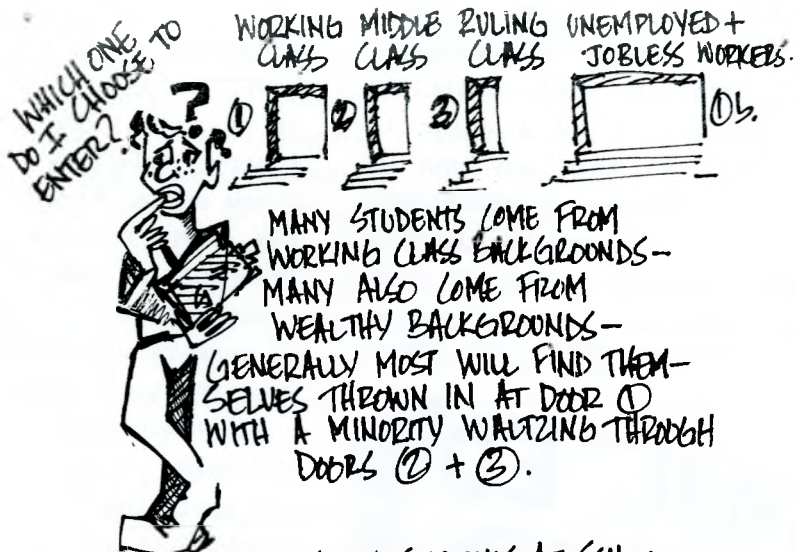 WHICH ONE
DO I CHOOSE TO
ENTER?
?
WORKING MIDDLE RULING UNEMPLOYED +
CLASS CLASS CLASS JOBLESS WORKERS.
① ② ③ ①b.
MANY STUDENTS COME FROM
WORKING CLASS BACKGROUNDS—
MANY ALSO COME FROM
WEALTHY BACKGROUNDS—
GENERALLY MOST WILL FIND THEM-
SELVES THROWN IN AT DOOR ①
WITH A MINORITY WALTZING THROUGH
DOORS ② + ③.